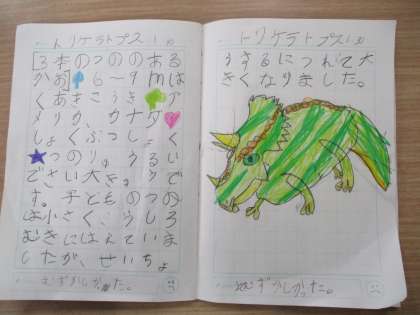 トリケラトプス1
[3本のつののある
かお] 6～9mは
くあきこうき ア
メリカ、カナダ
しょくぶつしょく
つのりゅうるい
でさい大きゅうで
す。子どものつの
は小さく、うしろ
むきにはんていま
したが、せいちょ
むずかしかった。
トリケラトプス
うするにつれて大
きくなりました。
むずかしかった。